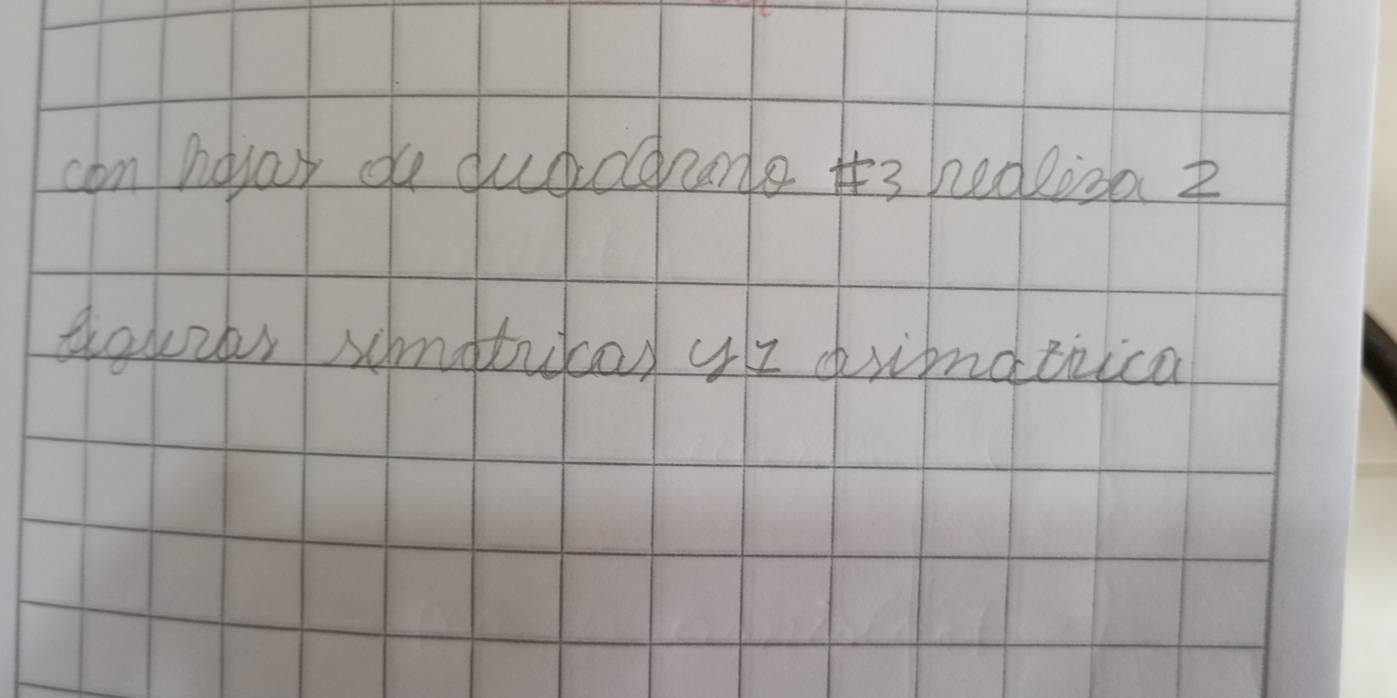 con hojas de cuaderno #3 realiza 2
figuras simetricas y 1 asimetrica